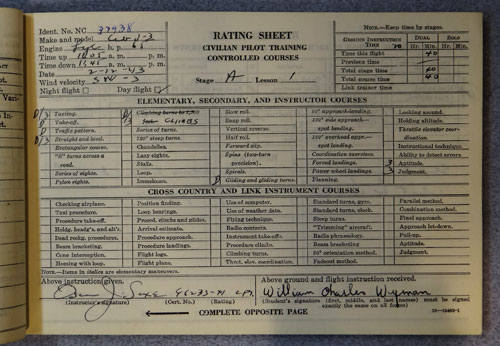 Ident. No. NC 37438
Make and model Cub J-3
Engine Lyc h. p. 65
Time up 11:01 a. m. p. m.
Time down 11:41 a. m. p. m.
Date 2-12-43
Wind velocity SW-3
Night flight Day flight
RATING SHEET
CIVILIAN PILOT TRAINING
CONTROLLED COURSES
Stage A Lesson 1
NOTE.—Keep time by stages.
GROUND INSTRUCTION TIME 30
DUAL SOLO
Hr. Min. Hr. Min.
Time this flight 40
Previous time
Total stage time 40
Total course time 40
Link trainer time
ELEMENTARY, SECONDARY, AND INSTRUCTOR COURSES
D/3 Taxiing.
Take-off.
D Traffic pattern.
D/3 Straight and level.
Rectangular course.
"S" turns across a road.
Series of eights.
Pylon eights.
Climbs
Series of turns.
720° steep turns.
Chandelles.
Lazy eights.
Stalls.
Loop.
Immelmann.
Slow roll.
Snap roll.
Vertical reverse.
Half roll.
Forward slip.
Spins (two-turn precision).
Spirals.
D Gliding and gliding turns.
90° approach-landing.
180° side approach-spot landing.
180° overhead appr.-spot landing.
Coordination exercises.
Forced landings.
Power-wheel landings.
Planning.
Looking around.
Holding altitude.
Throttle elevator coordination.
Instructional technique.
Ability to detect errors.
3 Aptitude.
3 Judgment.
CROSS COUNTRY AND LINK INSTRUMENT COURSES
Checking airplane.
Taxi procedure.
Procedure take-off.
Holdg. heady's. and alt's.
Dead reckg. procedures.
Beam bracketing.
Cone interception.
Homing with loop.
Position finding.
Loop bearings.
Pneed. climbs and glides.
Arrival estimate.
Procedure approach.
Procedure landings.
Flight logs.
Flight plans.
Use of computer.
Use of weather data.
Flying technique.
Radio contacts.
Instrument take-offs.
Procedure climbs.
Climbing turns.
Throt. elev. coordination.
Standard turns, gyro.
Standard turns, clock.
Steep turns.
"Trimming" aircraft.
Radio phraseology.
Beam bracketing.
90° orientation method.
Fadeout method.
Parallel method.
Combination method.
Final approach.
Approach let-down.
Pull-up.
Aptitude.
Judgment.
NOTE.—Items in italics are elementary maneuvers.
Above instruction given.
46233-41
(Instructor's signature) (Cert. No.) (Rating)
Above ground and flight instruction received.
William Charles Wyman
(Student's signature (first, middle, and last names) must be signed exactly the same on all forms)
COMPLETE OPPOSITE PAGE